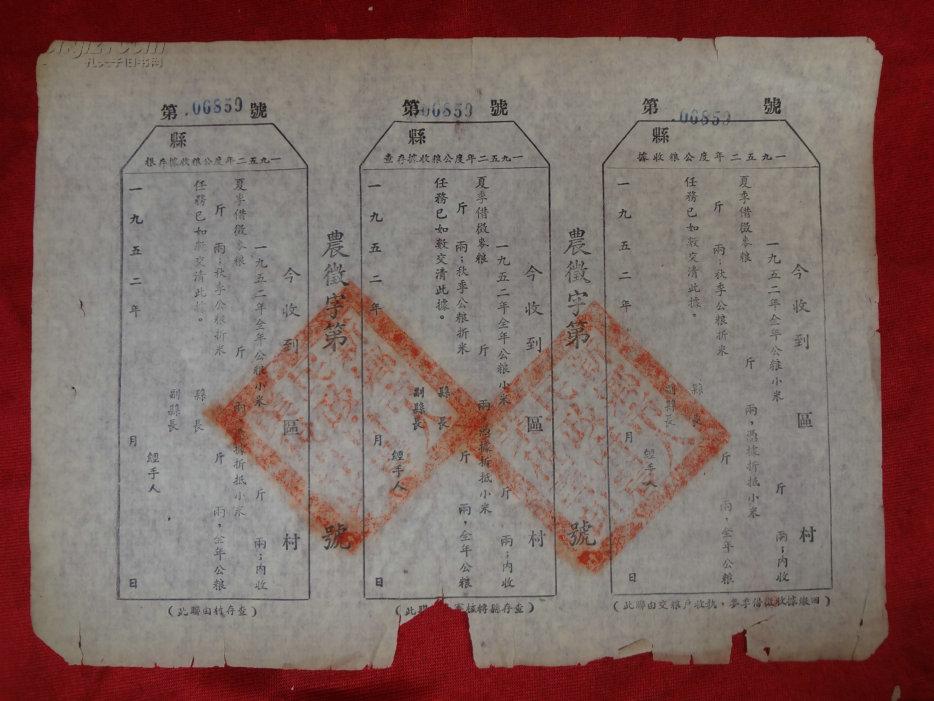 第 06859 號
縣
一九五二年度公粮收據
今收到 區 村
一九五二年全年公粮小米 斤 兩；內收
夏季借徵麥粮 斤 兩，憑據折抵小米
斤 兩；秋季公粮折米 斤 兩，全年公粮
任務已如數交清此據。
縣長
副縣長
經手人
一九五二年 月 日
（此聯由交粮户收执，麥季借徵收據繳回）
農徵字第 號
第 06859 號
縣
一九五二年度公粮收據存查
今收到 區 村
一九五二年全年公粮小米 斤 兩；內收
夏季借徵麥粮 斤 兩，憑據折抵小米
斤 兩；秋季公粮折米 斤 兩，全年公粮
任務已如數交清此據。
縣長
副縣長
經手人
一九五二年 月 日
（此聯 轉縣存查）
農徵字第 號
第 06859 號
縣
一九五二年度公粮收據存根
今收到 區 村
一九五二年全年公粮小米 斤 兩；內收
夏季借徵麥粮 斤 兩，憑據折抵小米
斤 兩；秋季公粮折米 斤 兩，全年公粮
任務已如數交清此據。
縣長
副縣長
經手人
一九五二年 月 日
（此聯由村存查）